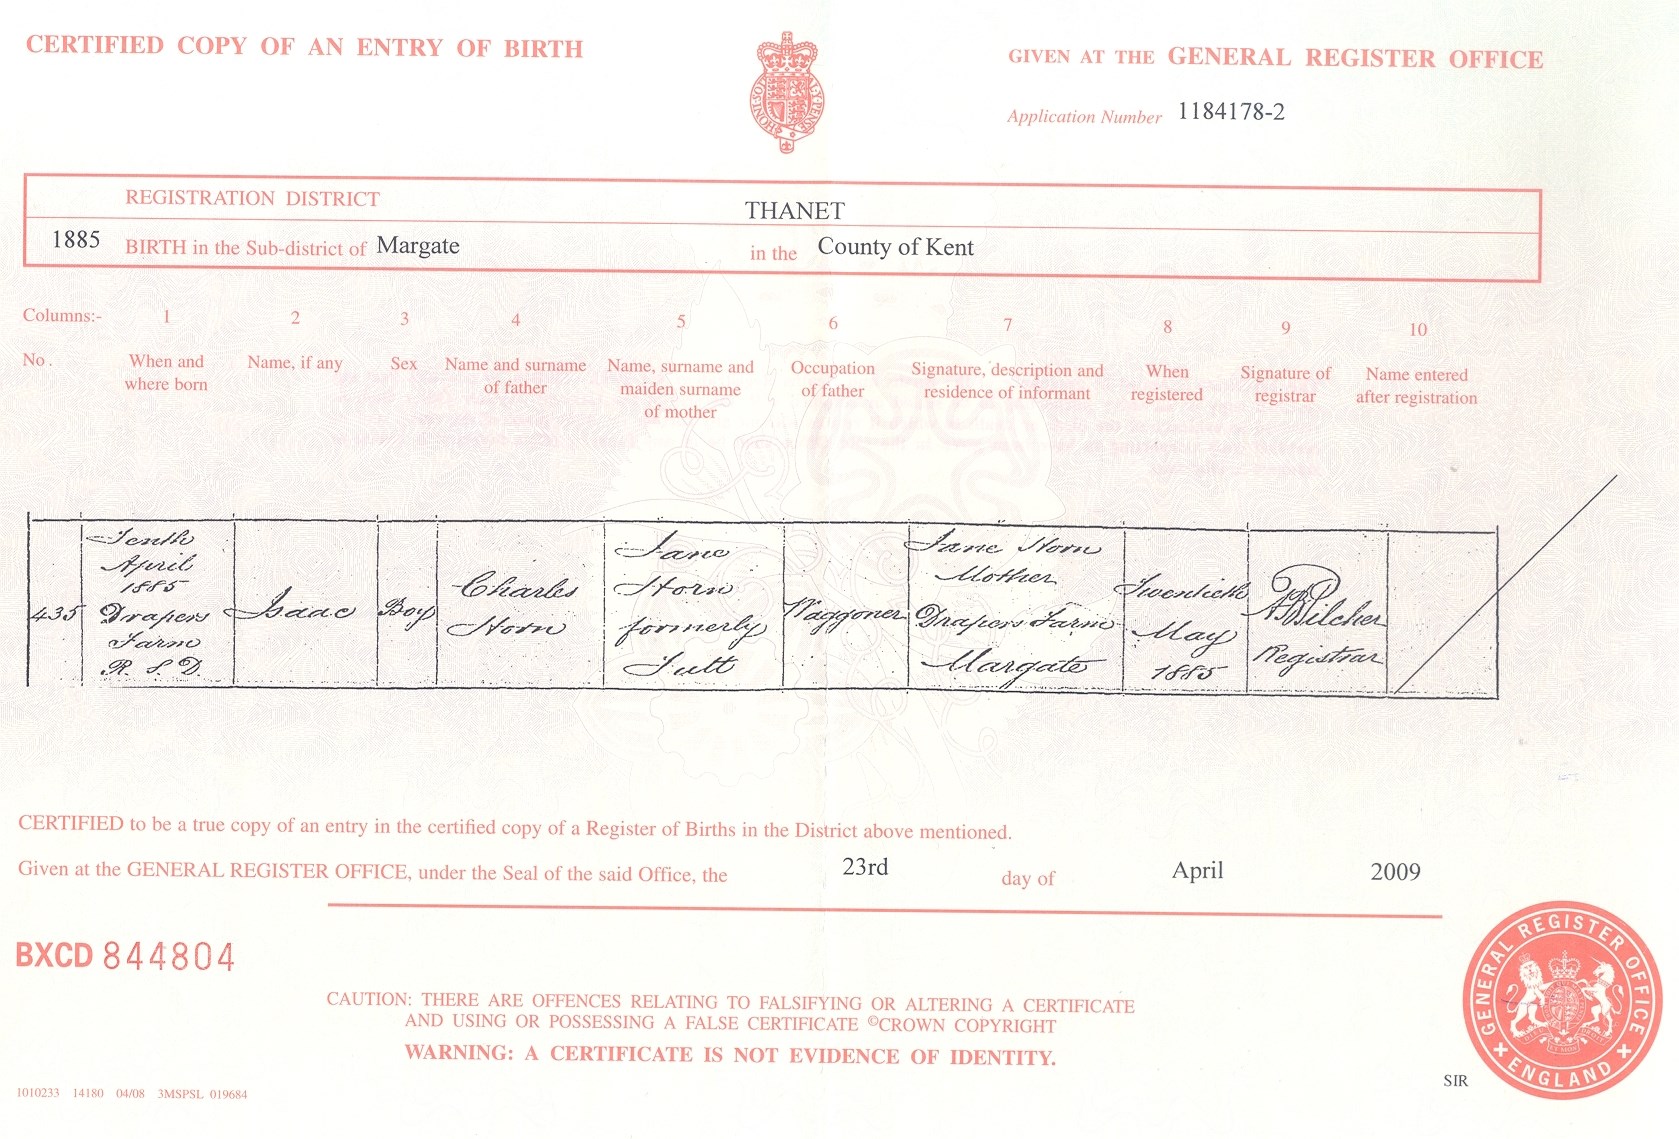 CERTIFIED COPY OF AN ENTRY OF BIRTH
GIVEN AT THE GENERAL REGISTER OFFICE
Application Number 1184178-2
REGISTRATION DISTRICT THANET
1885 BIRTH in the Sub-district of Margate in the County of Kent
Columns:- 1 2 3 4 5 6 7 8 9 10
No. When and where born
Name, if any
Sex
Name and surname of father
Name, surname and maiden surname of mother
Occupation of father
Signature, description and residence of informant
When registered
Signature of registrar
Name entered after registration
435
Tenth
April
1885
Drapers
Farm
R. S. D.
Isaac
Boy
Charles
Horn
Jane
Horn
formerly
Tutt
Waggoner
Jane Horn
Mother
Drapers Farm
Margate
Twentieth
May
1885
Pilcher
Registrar
CERTIFIED to be a true copy of an entry in the certified copy of a Register of Births in the District above mentioned.
Given at the GENERAL REGISTER OFFICE, under the Seal of the said Office, the 23rd day of April 2009
BXCD 844804
CAUTION: THERE ARE OFFENCES RELATING TO FALSIFYING OR ALTERING A CERTIFICATE
AND USING OR POSSESSING A FALSE CERTIFICATE ©CROWN COPYRIGHT
WARNING: A CERTIFICATE IS NOT EVIDENCE OF IDENTITY.
GENERAL REGISTER OFFICE
ENGLAND
SIR
1010233 14180 04/08 3MSPSL 019684